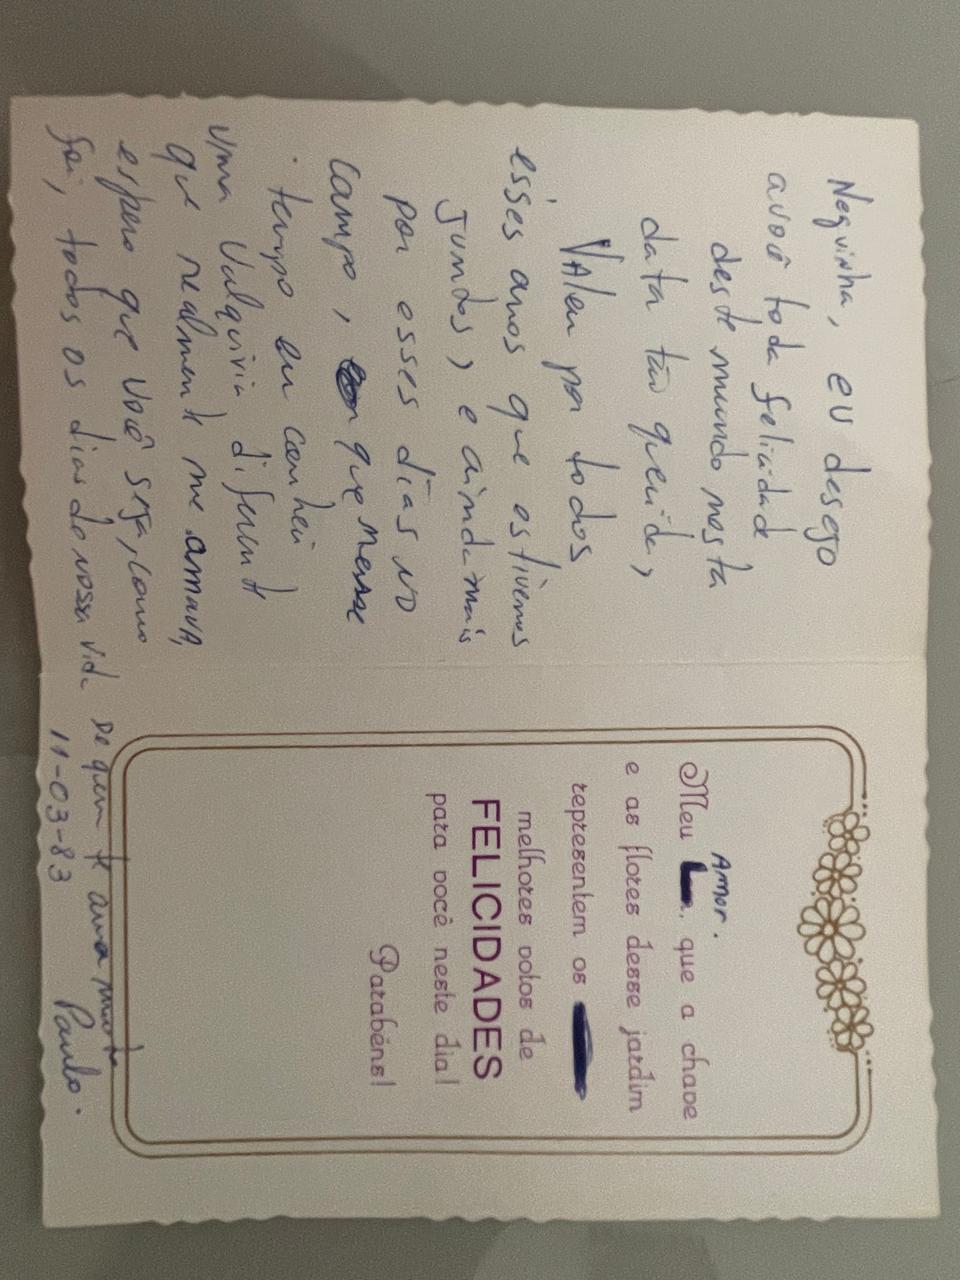 Neguinha, eu desejo
a você toda felicidade
deste mundo nesta
data tão querida,
Valeu por todos
esses anos que estivemos
juntos, e ainda mais
por esses dias no
campo, que nesse
tempo eu conheci
uma Valquiria diferente
que realmente me amava,
espero que você seja, como
foi, todos os dias de nossa vida
De quem te ama muito
11-03-83 Paulo.
Amor.
Meu , que a chave
e as flores desse jardim
representem os
melhores votos de
FELICIDADES
para você neste dia!
Parabéns!